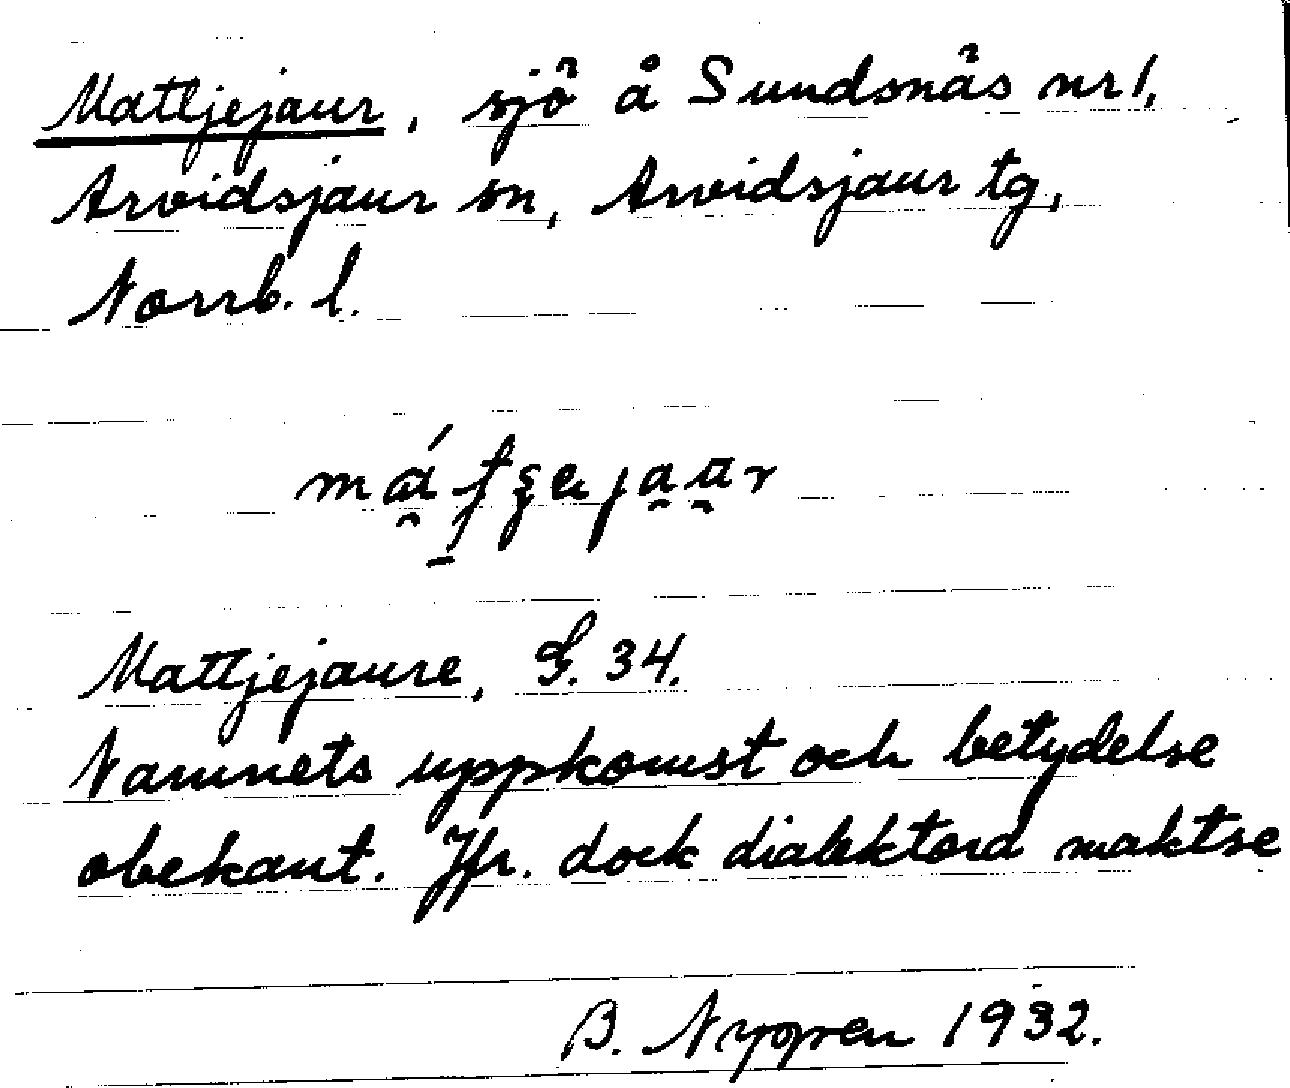 Mattjejaur, sjö å Sundsnäs nr 1,
Arvidsjaur sn, Arvidsjaur tg,
Norrb. l.
Mattjejaure, G. 34.
Namnets uppkomst och betydelse
obekant. Jfr. dock dialektord maktse
B. Nygren 1932.